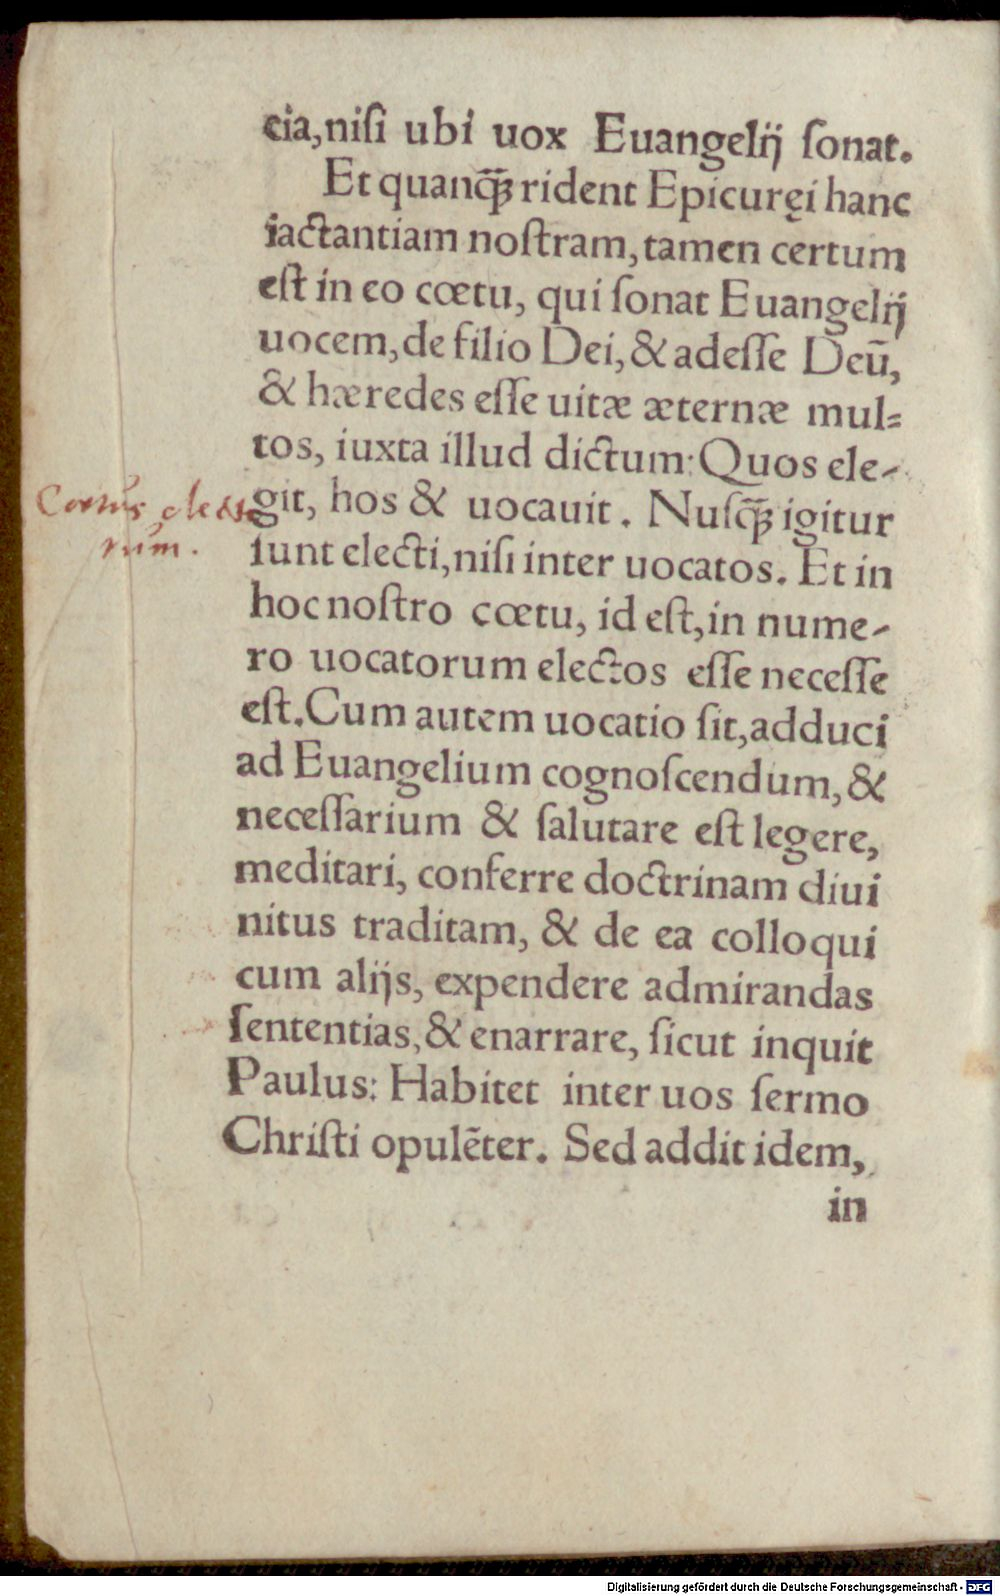 cia,niſi ubi uox Euangelij ſonat.
Et quanꝗ̃ rident Epicuręi hanc
iactantiam noſtram,tamen certum
eſt in eo cœtu, qui ſonat Euangelij
uocem,de filio Dei,& adeſſe Deū,
& hæredes eſſe uitæ æternæ mul=
tos, iuxta illud dictum: Quos ele-
git, hos & uocauit. Nuſꝗ̃ igitur
ſunt electi,niſi inter uocatos. Et in
hoc noſtro cœtu, id eſt,in nume-
ro uocatorum electos eſſe neceſſe
eſt.Cum autem uocatio ſit,adduci
ad Euangelium cognoſcendum,&
neceſſarium & ſalutare eſt legere,
meditari, conferre doctrinam diui
nitus traditam, & de ea colloqui
cum alijs, expendere admirandas
ſententias,& enarrare, ſicut inquit
Paulus: Habitet inter uos ſermo
Chriſti opulēter. Sed addit idem,
in
Coetus electo
rum.
Digitalisierung gefördert durch die Deutsche Forschungsgemeinschaft - DFG